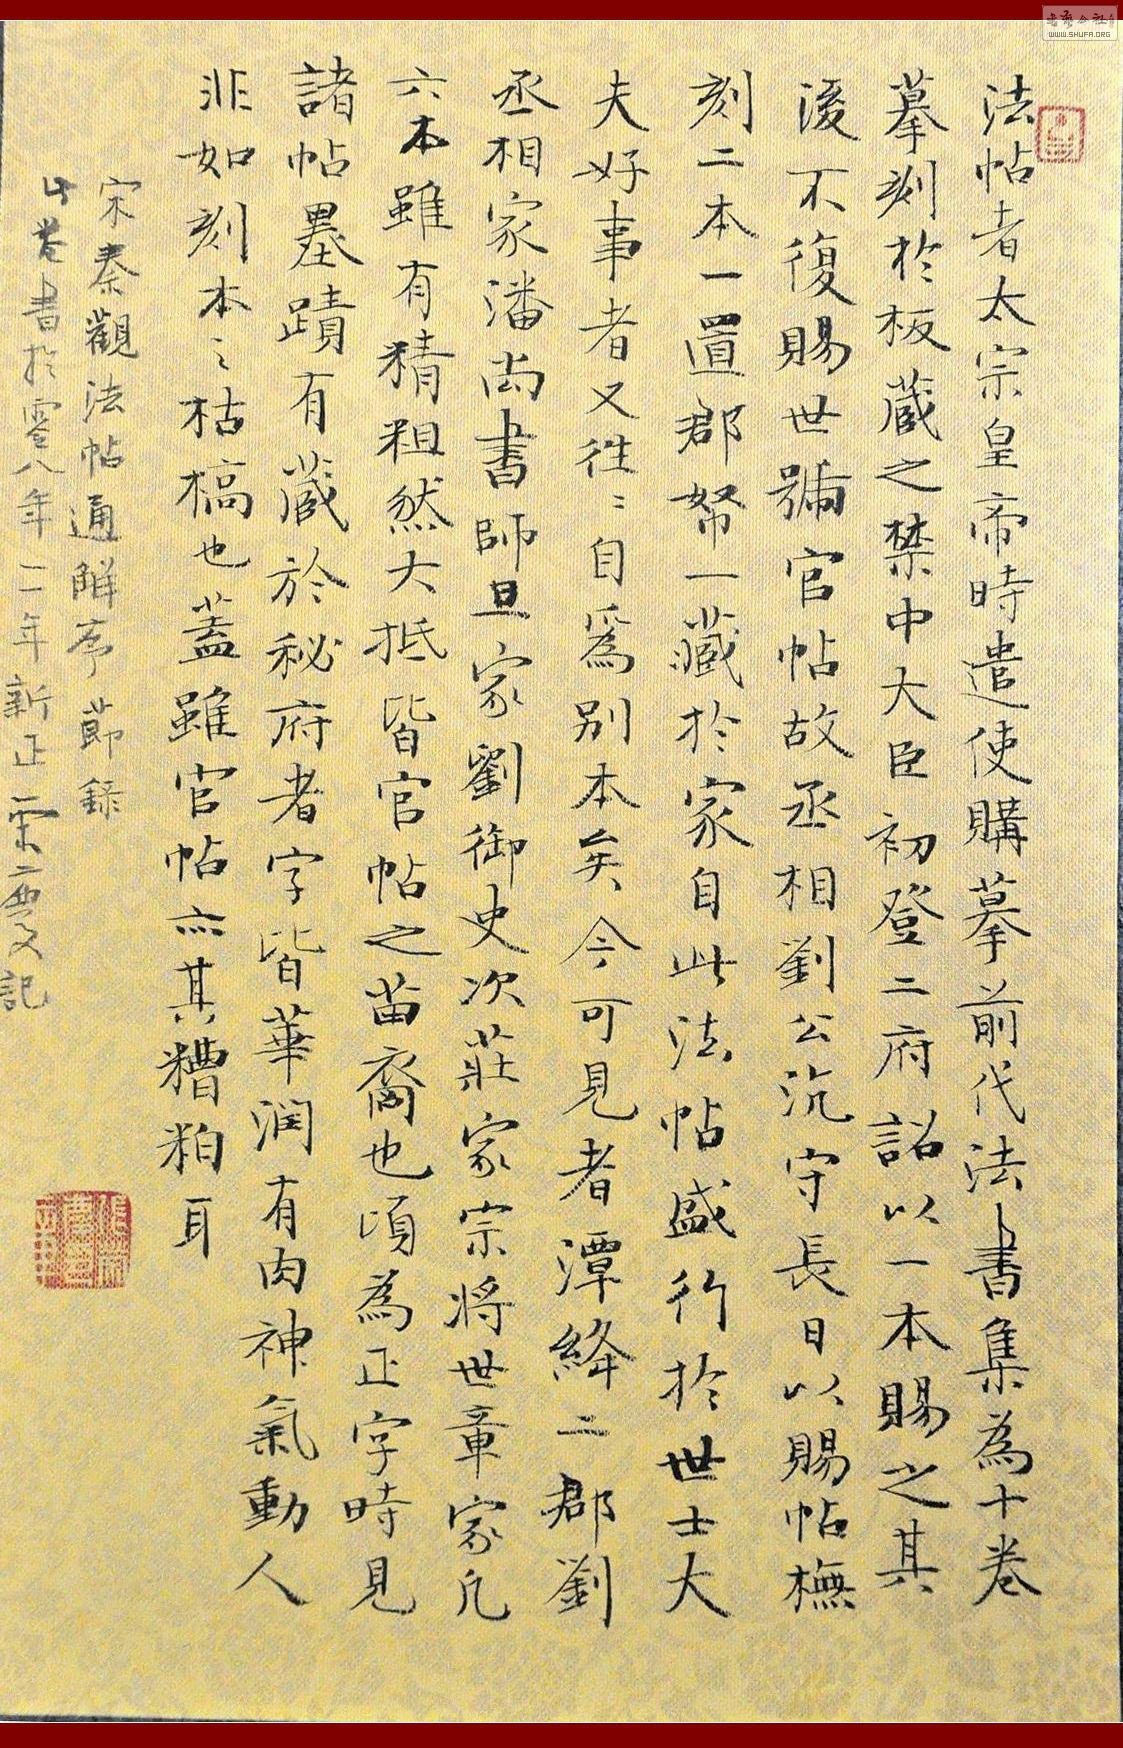 法帖者太宗皇帝時遣使購摹前代法書集為十卷
摹刻於板藏之禁中大臣初登二府詔以一本賜之其
後不復賜世號官帖故丞相劉公沆守長日以賜帖橅
刻二本一置郡帑一藏於家自此法帖盛行於世士大
夫好事者又往〻自爲別本矣今可見者潭絳二郡劉
丞相家潘尚書師旦家劉御史次莊家宗將世章家凡
六本雖有精粗然大抵皆官帖之苗裔也頃為正字時見
諸帖墨蹟有藏於秘府者字皆華潤有肉神氣動人
非如刻本之枯槁也蓋雖官帖亦其糟粕耳
宋秦觀法帖通解序節錄
書於零八年二年新正 記
WWW.SHUFA.ORG